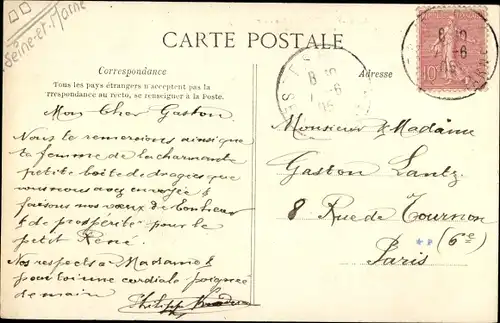 Seine-et-Marne
CARTE POSTALE
Correspondance
Tous les pays étrangers n'acceptent pas la
correspondance au recto, se renseigner à la Poste.
Adresse
Mon Cher Gaston
Nous te remercions ainsi que
ta femme de la charmante
petite boite de dragées que
vous nous avez envoyée &
faisons nos vœux de bonheur
& de prospérité pour le
petit René.
Nos respects à Madame &
pour toi une cordiale poignée
de main
Philipp
Monsieur & Madame
Gaston Lantz
8 Rue de Tournon
(6e)
Paris
8
7-6
05
10
8
-6
05